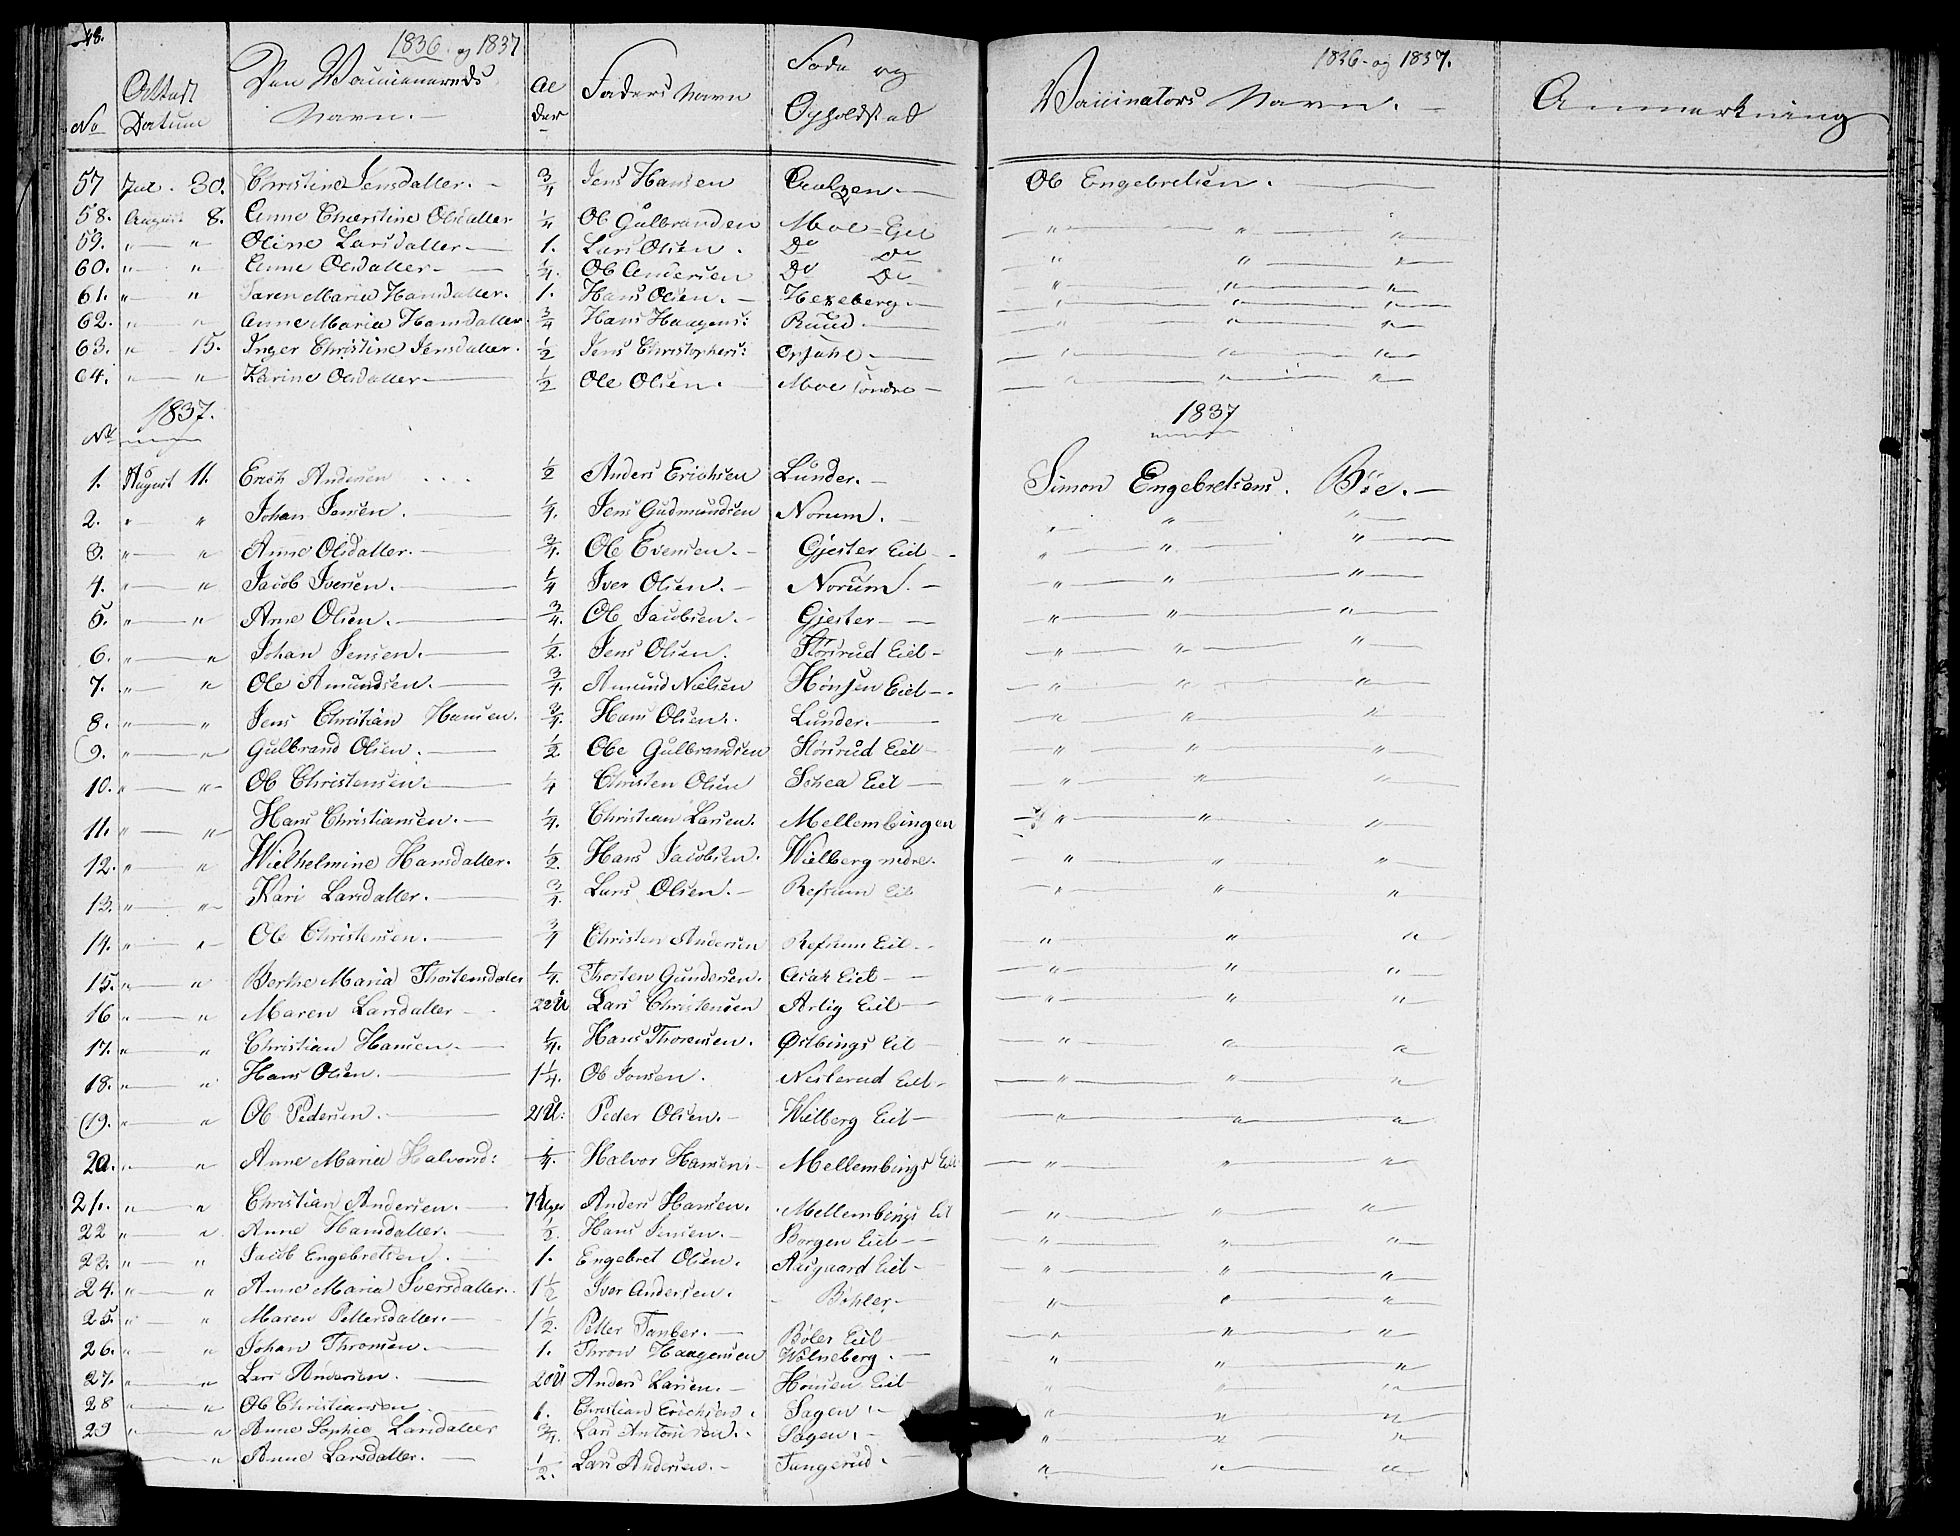 48.
1836 og 1837
1836 og 1837.
No Attest Datum Den Vaccinerereds Navn. Alder Faders Navn Føde og Opholdsted Vaccinators Navn. Anmærkning
57 Jul. 30. Christine Jensdatter. 3/4 Jens Hansen Ole Engebretsen.
58. August 8. Anne Christine Olsdatter 1/4 Ole Gulbranden Moe-Eiet " " "
59. " " Oline Larsdatter 1. Lars Olsen. Do Do " " "
60. " " Anne Olsdatter 1/4. Ole Andersen Do Do " " "
61. " " Karen Maria Hansdatter. 1. Hans Olsen. Hexeberg. " " "
62. " " Anne Maria Hansdatter. 3/4 Hans Haagens: Ruud " " "
63. " 15. Inger Christine Jensdatter. 1/2 Jens Christophers: Opsahl " " "
64. " " Karine Olsdatter 1/2 Ole Olsen. Moe søndre " " "
1837.
1837
No
1. August 11. Erich Andersen 1/2 Anders Erichsen Lunder. Simon Engebretsens. Bøe.
2. " " Johan Jensen. 1/4. Jens Gudmundsen Norum. " " "
3. " " Anne Olsdatter. 3/4. Ole Evensen. Gjester Eiet " " "
4. " " Jacob Iversen. 1/4 Iver Olsen. Norum. " " "
5. " " Arne Olsen. 3/4. Ole Jacobsen. Gjester " " "
6. " " Johan Jensen. 1/2. Jens Olsen. Størsrud Eiet " " "
7. " " Ole Amundsen. 3/4. Amund Nielsen Hønsen Eiet " " "
8. " " Jens Christian Hansen. 3/4. Hans Olsen. Lunder. " " "
9. " " Gulbrand Olsen. 1/2 Ole Gulbrandsen Størsrud Eiet " " "
10. " " Ole Christensen. 1/4 Christen Olsen Schea Eiet " " "
11. " " Hans Christiansen. 1/4. Christian Larsen. Mellembingen " " "
12. " " Wielhelmine Hansdatter. 1/2 Hans Jacobsen. Wielberg nedre. " " "
13. " " Kari Larsdatter. 3/4. Lars Olsen. Refsum Eiet " " "
14. " " Ole Christensen. 3/4 Christen Andersen Refsum Eiet " " "
15. " " Berthe Maria Thorstensdatter 1/4. Thorsten Gundersen. Asak Eiet " " "
16 " " Maren Larsdatter 22 U Lars Christensen Arlig Eiet " " "
17. " " Christian Hansen. 1/4. Hans Thoresen. Østbings Eiet " " "
18. " " Hans Olsen. 1 1/4. Ole Jonsen. Neslerud Eiet " " "
19. " " Ole Pedersen. 21 U: Peder Olsen. Wielberg Eiet " " "
20. " " Anne Maria Halvorsd: 1/4. Halvor Hansen. Mellembings Eiet " " "
21. " " Christian Andersen. 7 Uger Anders Hansen. Mellembings Eiet " " "
22 " " Anne Hansdatter. 1/2. Hans Jensen. Borgen Eiet " " "
23. " " Jacob Engebretsen. 1. Engebret Olsen. Aasgaard Eiet " " "
24. " " Anne Maria Iversdatter. 1 1/2 Iver Andersen. Bøhler " " "
25. " " Maren Pettersdatter. 1 1/2. Petter Tanber. Bøler Eiet " " "
26. " " Johan Thronsen. 1. Thron Haagensen Wølneberg. " " "
27. " " Lars Andersen. 20 U Anders Larsen. Hønsen Eiet " " "
28 " " Ole Christiansen 1. Christian Erichsen. Hagen. " " "
29 " " Anne Sophie Larsdatter 3/4. Lars Antonisen. Hagen. " " "
" Anne Larsdatter. 1/2. Lars Andersen. Tangerud. " " "